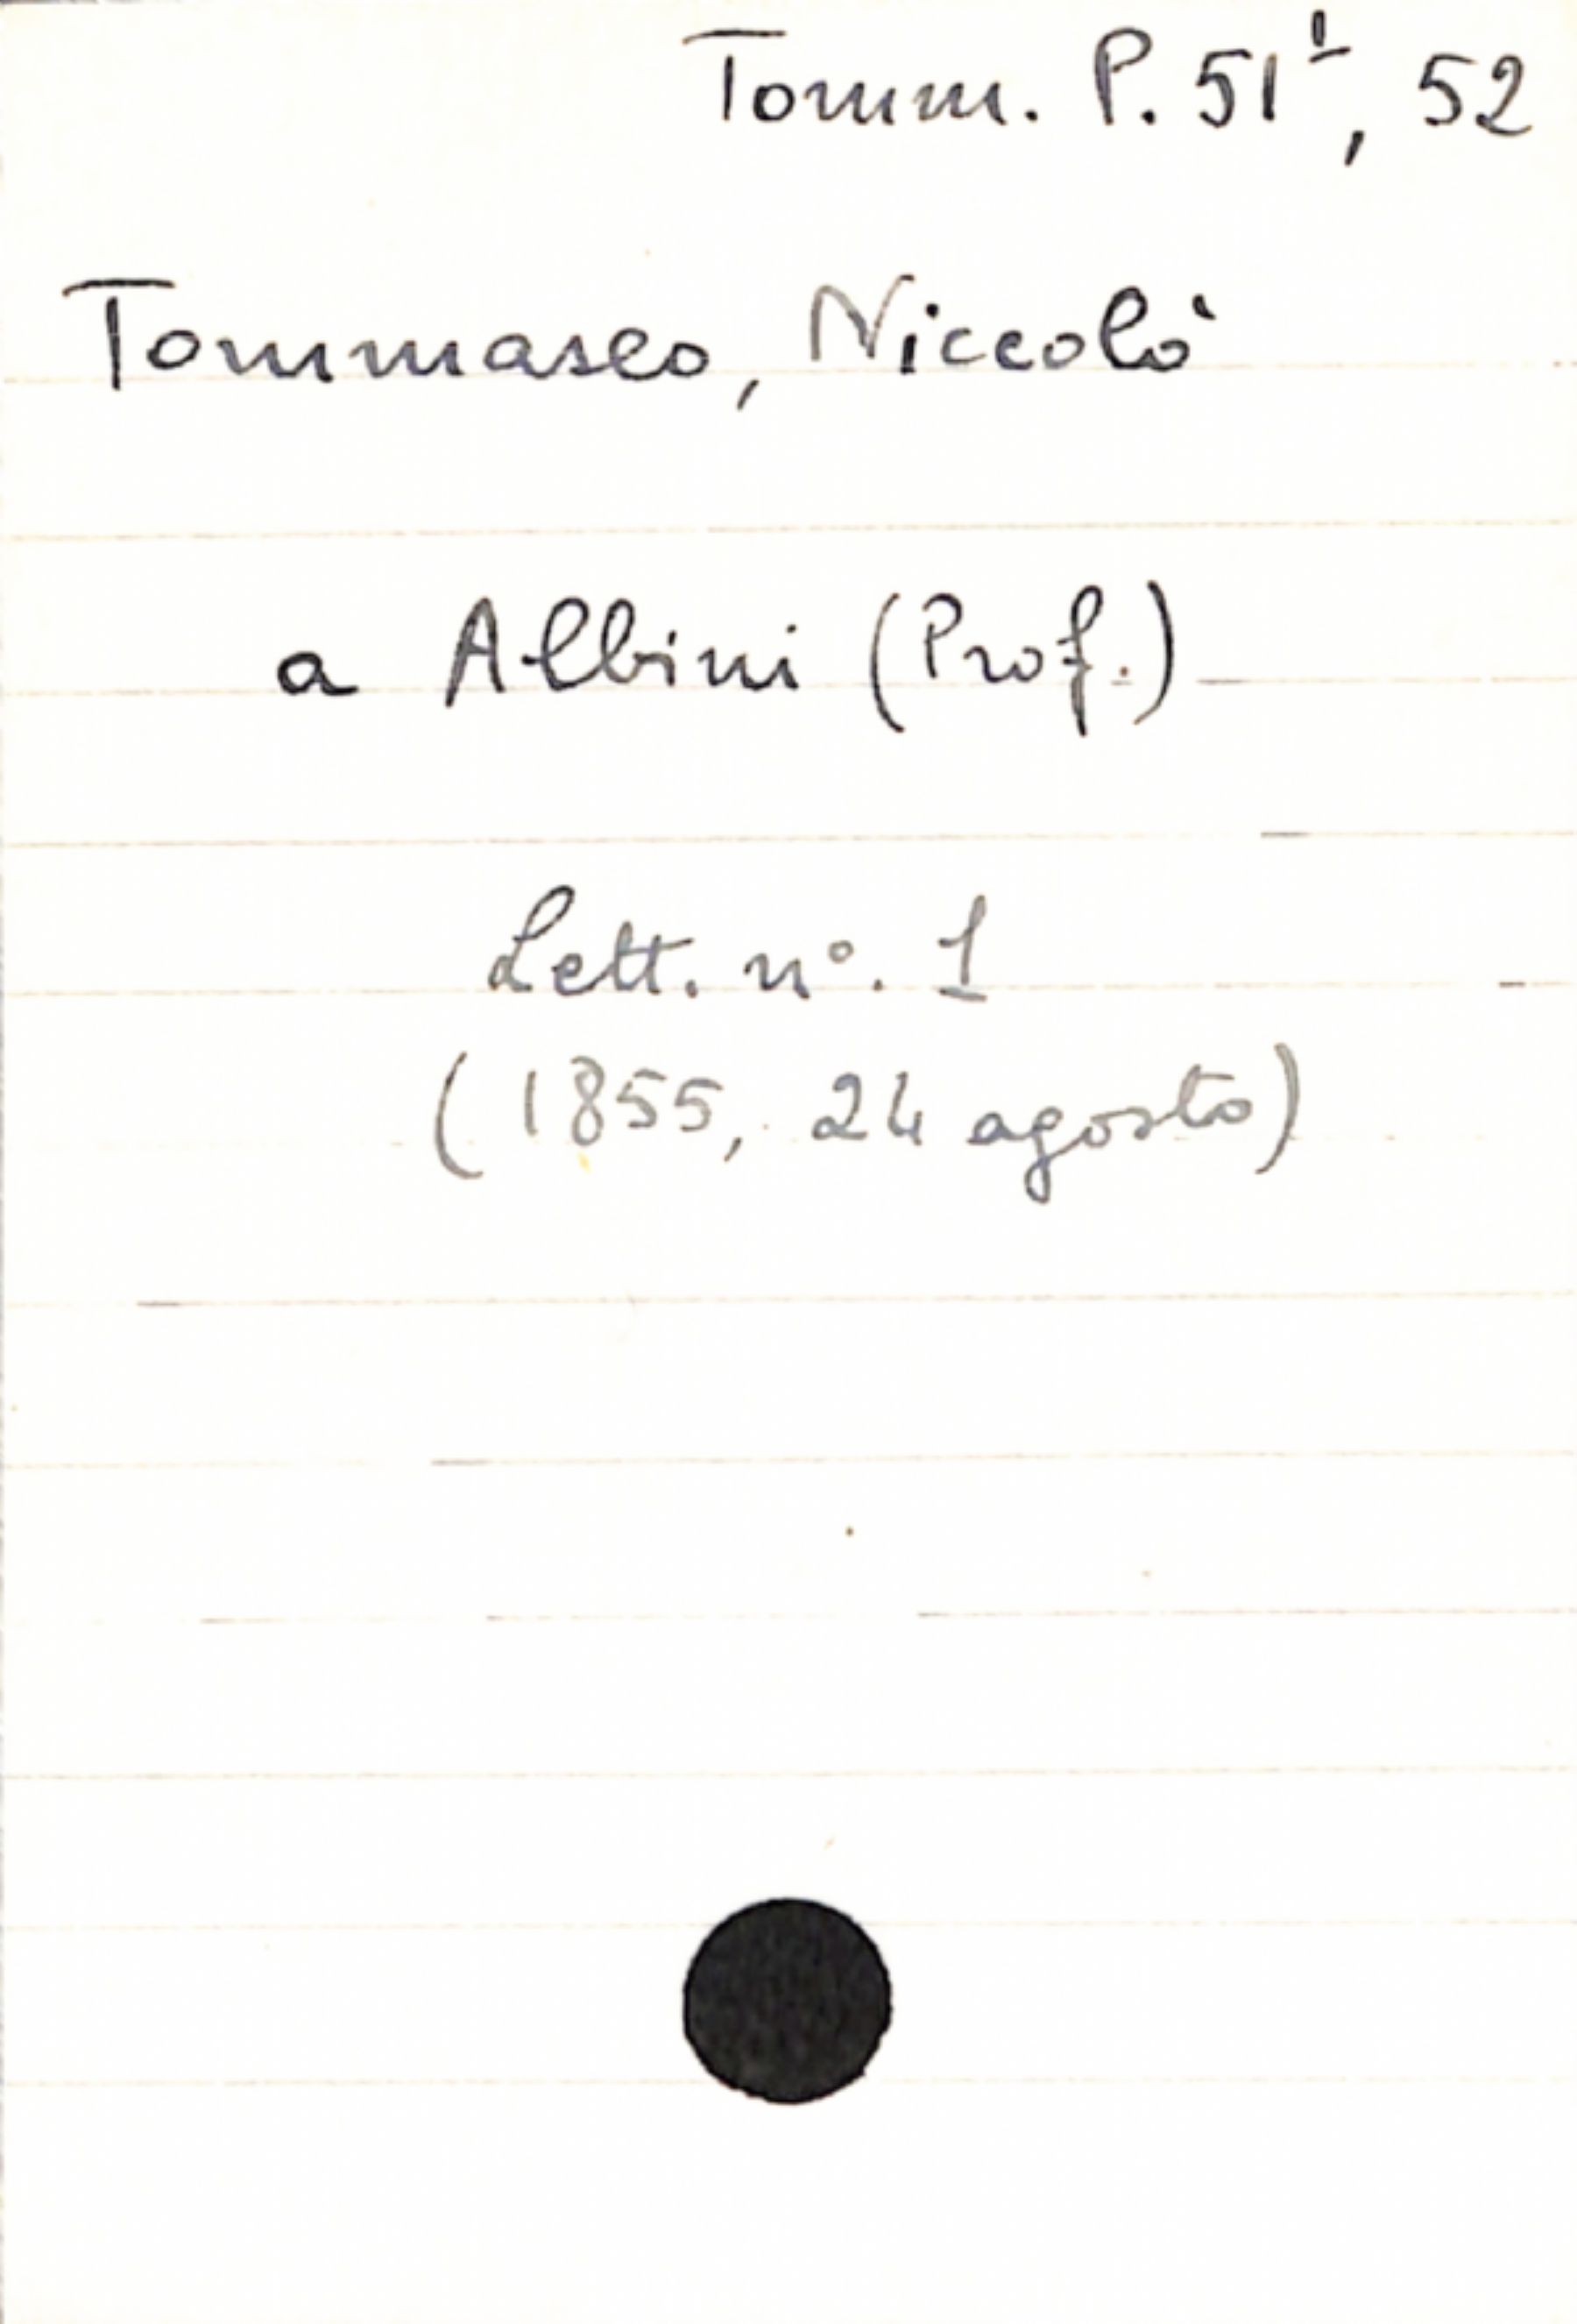 Tomm. P. 51¹, 52
Tommaseo, Niccolò
a Albini (Prof.)
Lett. n°. 1
(1855, 24 agosto)